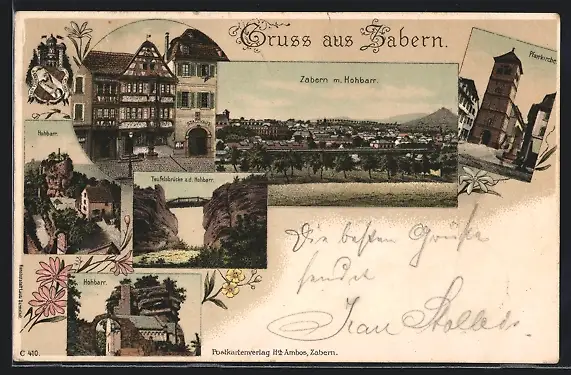 Gruss aus Zabern.
Pfarrkirche
Zabern m. Hohbarr.
Hohbarr.
Teufelsbrücke a.d. Hohbarr.
Hohbarr.
Die besten Grüße
sendet
Frau
C 410.
Postkartenverlag Hch Ambos, Zabern.